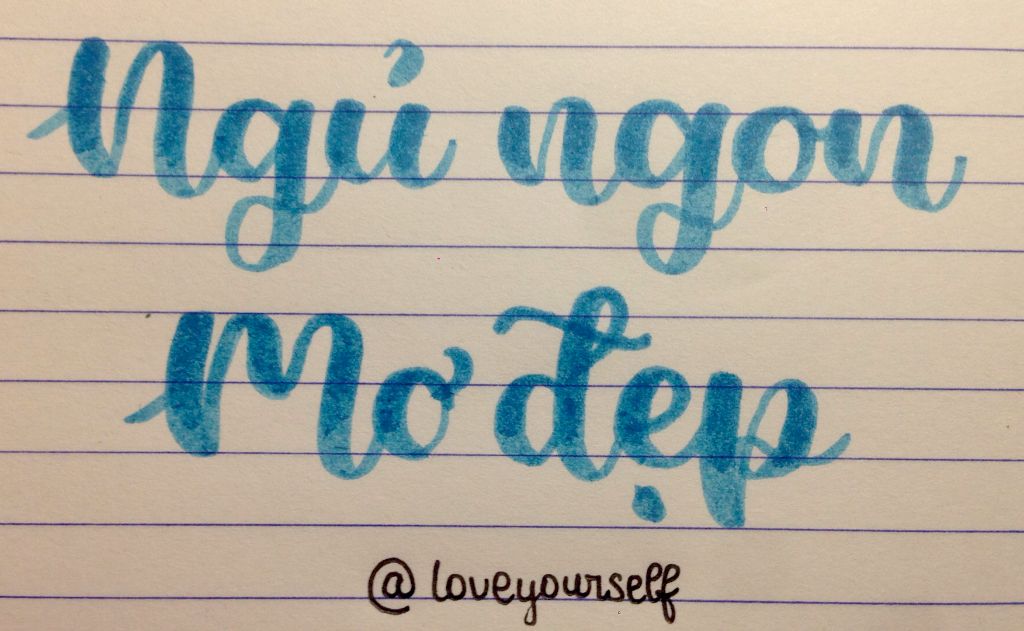 Ngủ ngon
Mơ đẹp
@loveyourself